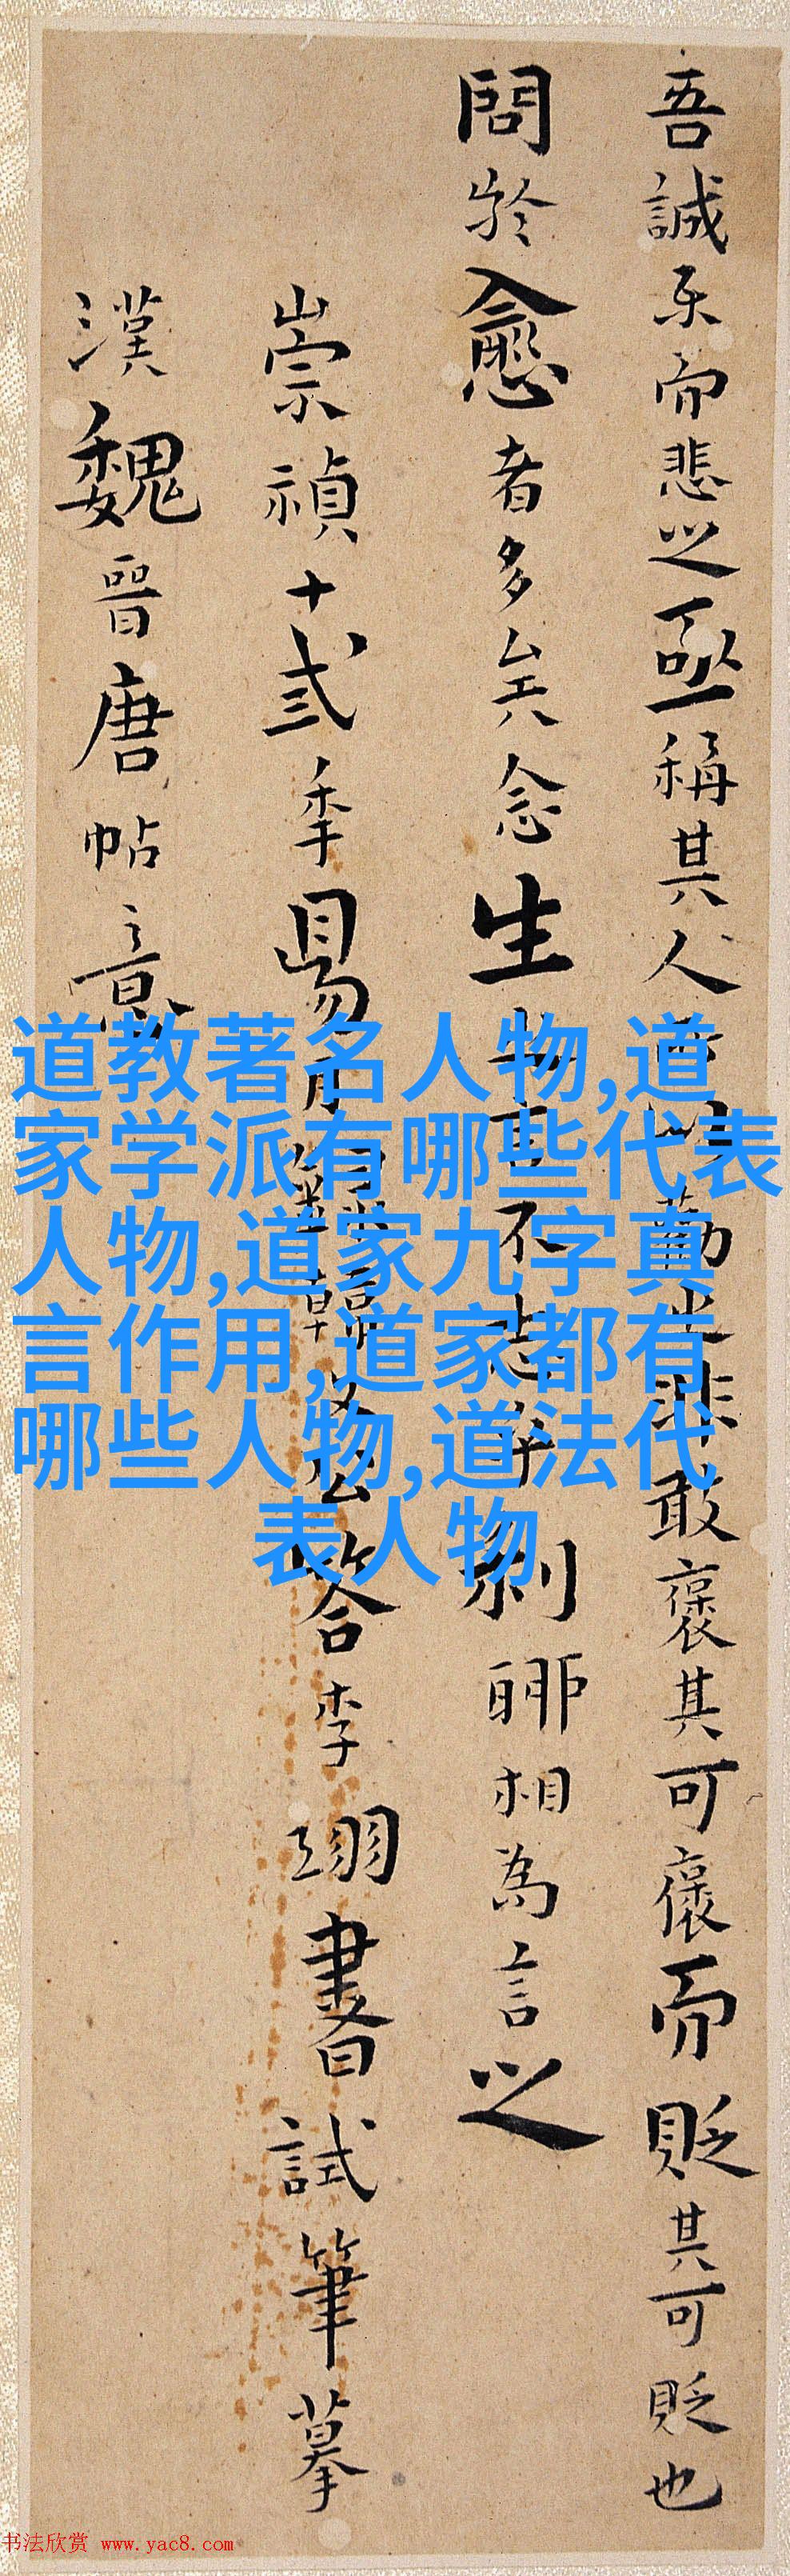 吾誠樂而悲之亟稱其人
勸是非敢褒其可褒而貶其可貶也
問於愈者多矣念生
言不志
相為言之
崇禎十弍季
月
公答李翊書試筆摹
漢魏晉唐帖意
道教著名人物,道
家学派有哪些代表
人物,道家九字真
言作用,道家都有
哪些人物,道法代
表人物
书法欣赏 www.yac8.com